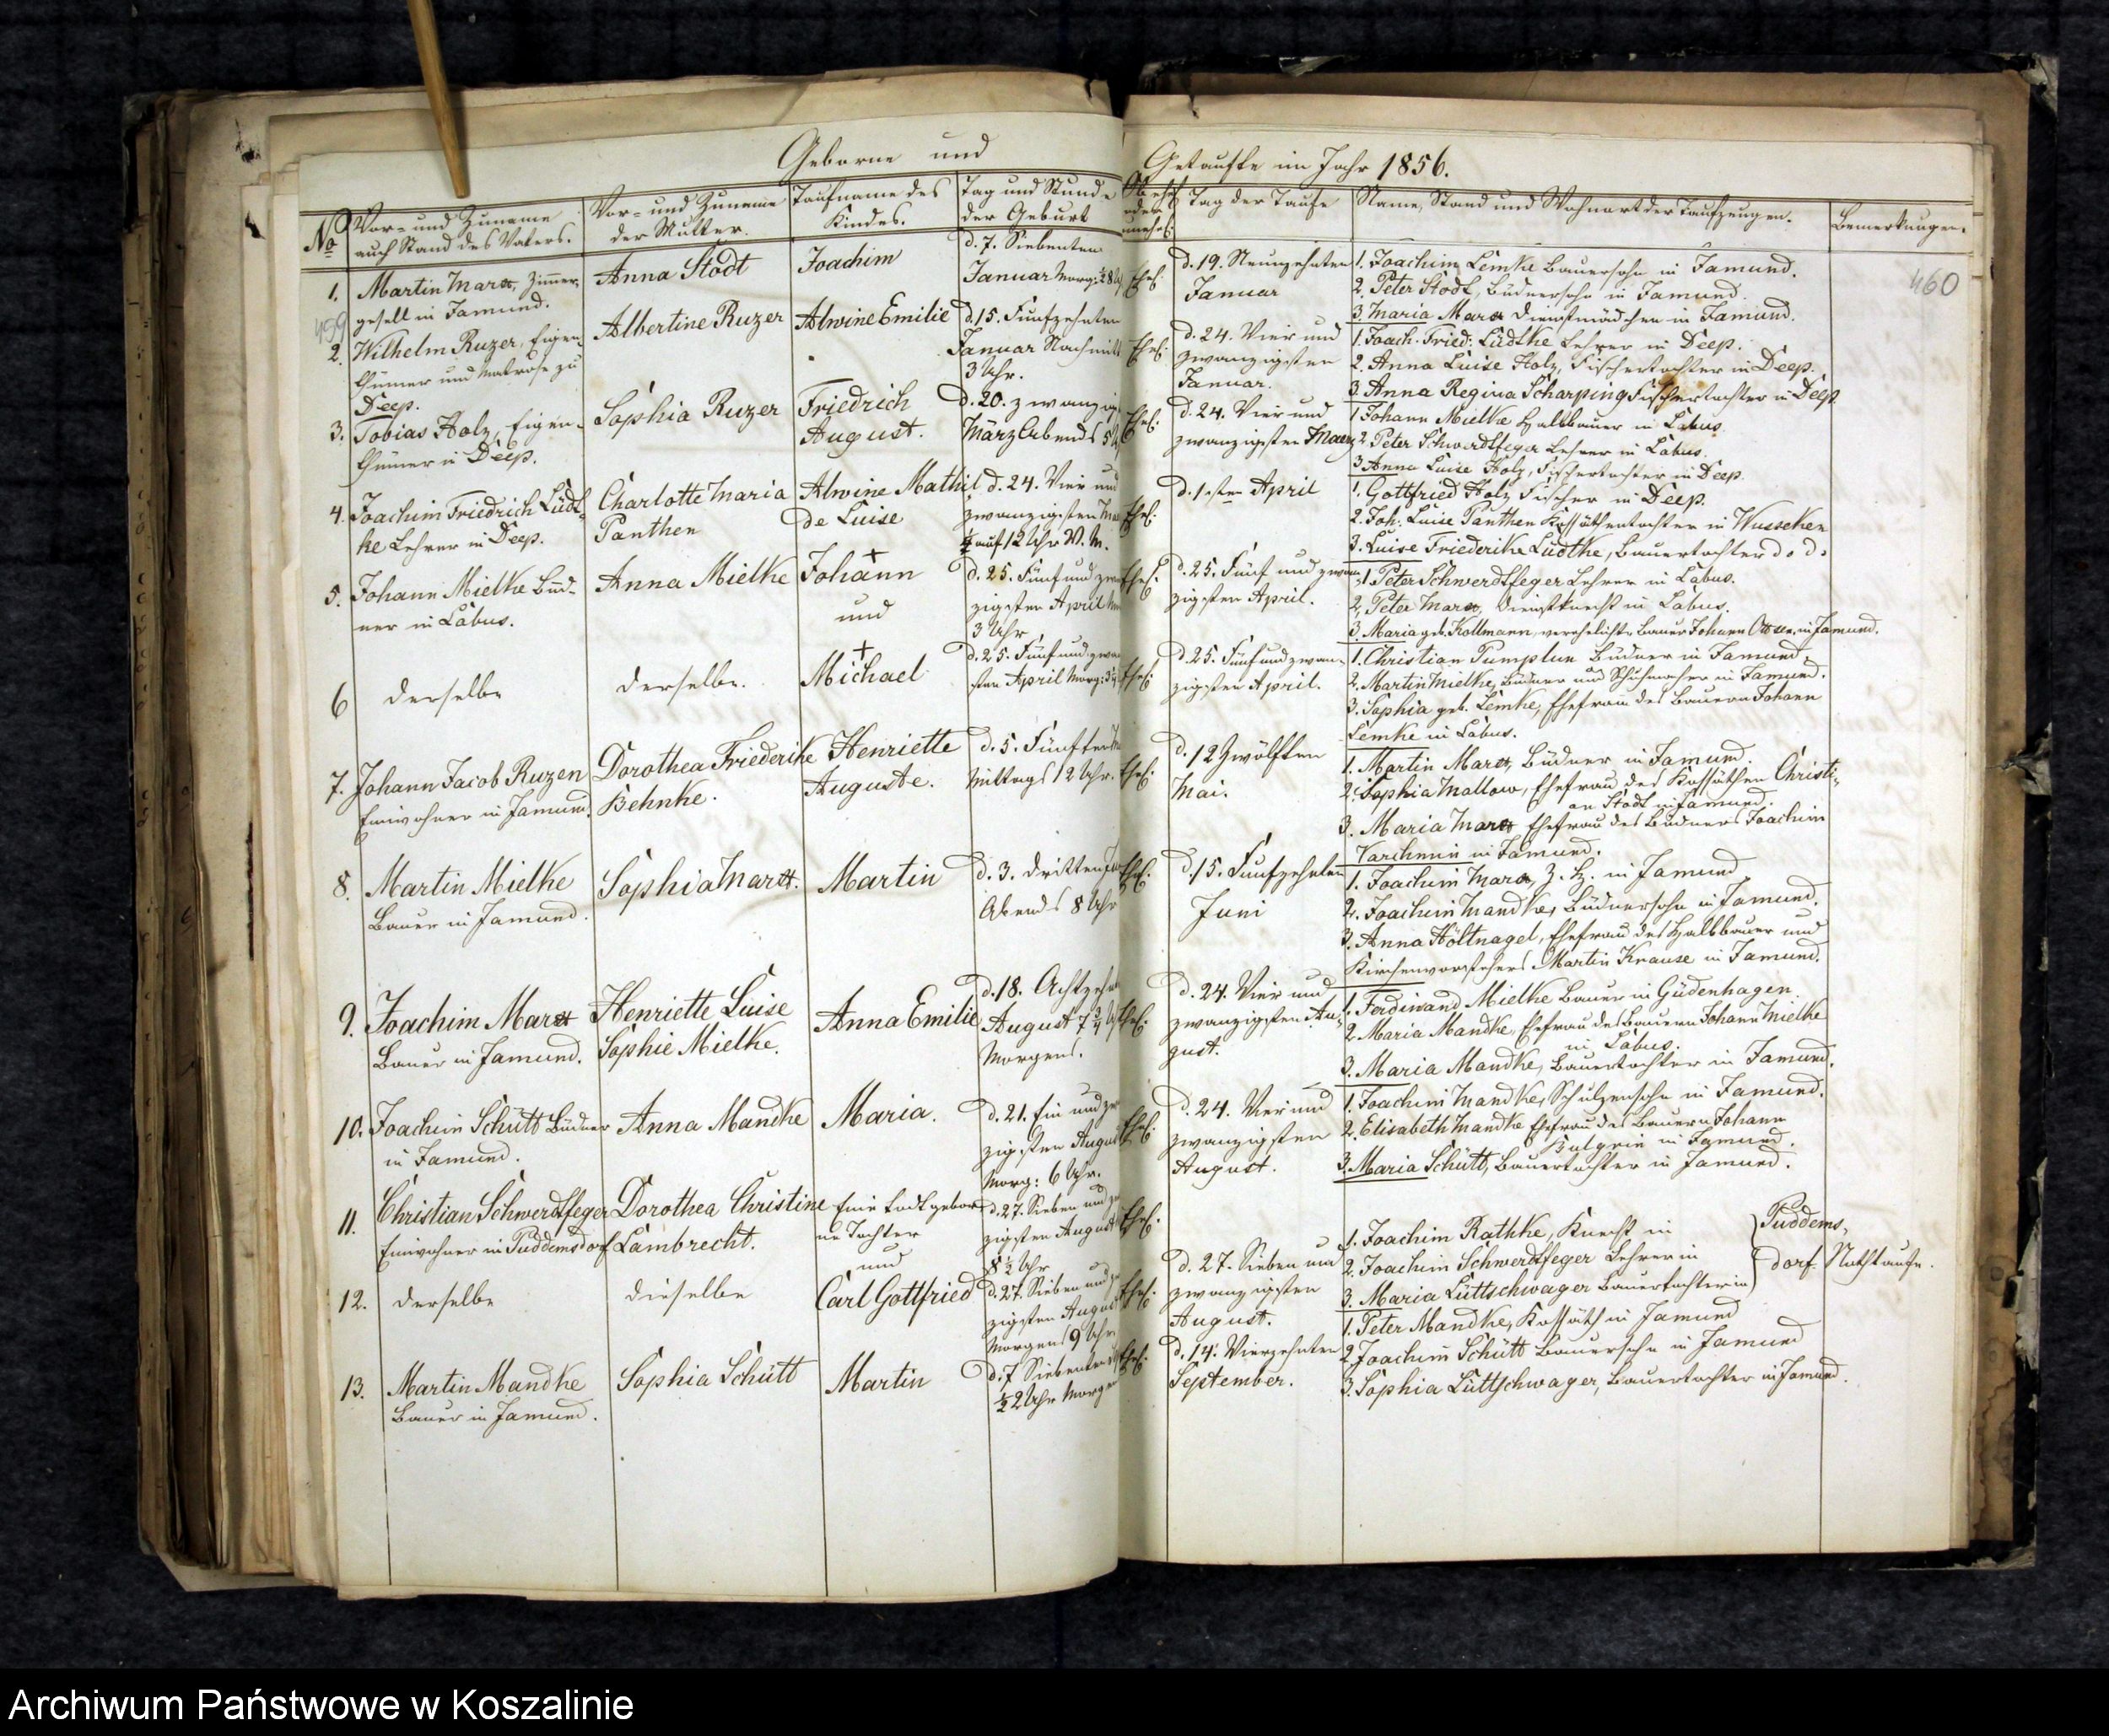 Geborne und
No
Vor- und Zuname
auch Stand des Vaters.
Vor- und Zuname
der Mutter.
Taufname des
Kindes.
Tag und Stunde
der Geburt
1. Martin Marx, Zimmer-
gesell in Jamund.
Anna Stodt
Joachim
d. 7. Siebenten
Januar Morg:
459
2. Wilhelm Ruzer, Eigen-
thümer und Matrose zu
Deep.
Albertine Ruzer
Alwine Emilie
d. 15. Funfzehnten
Januar Nachmitt
3 Uhr.
3. Tobias Holz, Eigen-
thümer in Deep.
Sophia Ruzer
Friedrich
August.
d. 20. zwanzig
März Abends 5
4. Joachim Friedrich Lüdt-
ke Lehrer in Deep.
Charlotte Maria
Panthen
Alwine Mathil
de Luise
d. 24. Vier und
zwanzigsten
auf 12 Uhr V. M.
5. Johann Mielke Büd-
ner in Labus.
Anna Mielke
+
Johann
und
d. 25. Fünf und zwan
zigsten April
3 Uhr
6 derselbe
derselbe.
+
Michael
d. 25. Fünf und zwan
sten April Morg:
7. Johann Jacob Ruzen
Einwohner in Jamund.
Dorothea Friederike
Behnke.
Henriette
Auguste.
d. 5. Fünften
Mittags 12 Uhr.
8. Martin Mielke
Bauer in Jamund.
Sophia Marx.
Martin
d. 3. dritten
Abends 8 Uhr
9. Joachim Marx
Bauer in Jamund.
Henriette Luise
Sophie Mielke.
Anna Emilie
d. 18. Achtzehn
August 7 3/4
Morgens.
10. Joachim Schütt Büdner
in Jamund.
Anna Mandke
Maria.
d. 21. Ein und zw
zigsten August
Morg: 6 Uhr.
11. Christian Schwerdtfeger
Einwohner in Puddemsdorf
Dorothea Christine
Lambrecht.
Eine todtgebor
ne Tochter
und
d. 27. Sieben und
zigsten August
8 1/2 Uhr
12. derselbe
dieselbe
Carl Gottfried
d. 27. Sieben und
zigsten August
Morgens 9 Uhr
13. Martin Mandke
Bauer in Jamund.
Sophia Schütt
Martin
d. 7 Siebenten
1/2 2 Uhr Morgen
Getaufte im Jahr 1856.
oder
Tag der Taufe
Name, Stand und Wohnort der Taufzeugen.
Bemerkungen.
460
Ehel.
d. 19. Neunzehnten
Januar
1. Joachim Lemke Bauersohn in Jamund.
2. Peter Stodt, Büdnersohn in Jamund.
3. Maria Marx Dienstmädchen in Jamund.
Ehel.
d. 24. Vier und
zwanzigsten
Januar.
1. Joach. Fried: Lüdtke Lehrer in Deep.
2. Anna Luise Holz, Fischertochter in Deep.
3. Anna Regina Scharping Fischertochter in Deep
Ehel.
d. 24. Vier und
zwanzigsten Maerz
1. Johann Mielke Halbbauer in Labus
2. Peter Schwerdtfeger Lehrer in Labus.
3 Anna Luise Holz, Fischertochter in Deep.
Ehel.
d. 1sten April
1. Gottfried Holz Fischer in Deep.
2. Joh: Luise Panthen Kossäthentochter in Wusseken
3. Luise Friederike Lüdtke, Bauertochter do d.
Ehel.
d. 25. Fünf und zwan-
zigsten April.
1. Peter Schwerdtfeger Lehrer in Labus.
2. Peter Marx, Dienstknecht in Labus.
3. Maria geb. Kollmann, verehelichte Bauer Johann in Jamund.
Ehel.
d. 25. Fünf und zwan-
zigsten April.
1. Christian Pumplun Büdner in Jamund.
2. Martin Mielke, Büdner und Schuhmacher in Jamund.
3. Sophia geb. Lemke, Ehefrau des Bauern Johann
Lemke in Labus.
Ehel.
d. 12 Zwölften
Mai.
1. Martin Marx, Büdner in Jamund.
2. Sophia Mallow, Ehefrau des Kossäthen Christi-
an Stodt in Jamund.
3. Maria Marx Ehefrau des Büdners Joachim
Varchmin in Jamund.
Ehel.
d. 15. Funfzehnten
Juni
1. Joachim Marx, Z. H. in Jamund
2. Joachim Mandke, Büdnersohn in Jamund.
3. Anna Höltnagel, Ehefrau des Halbbauer und
Kirchenvorstehers Martin Krause in Jamund.
Ehel.
d. 24. Vier und
zwanzigsten Au-
gust.
1. Ferdinand Mielke Bauer in Güdenhagen
2 Maria Mandke, Ehefrau des Bauern Johann Mielke
in Labus.
3. Maria Mandke, Bauertochter in Jamund.
Ehel.
d. 24. Vier und
zwanzigsten
August.
1. Joachim Mandke, Schulzensohn in Jamund.
2. Elisabeth Mandke Ehefrau des Bauern Johann
in Jamund.
3. Maria Schütt, Bauertochter in Jamund.
Ehel.
Ehel.
d. 27. Sieben und
zwanzigsten
August.
1. Joachim Rathke, Knecht in
2. Joachim Schwerdtfeger Lehrer in
3. Maria Lüttschwager Bauertochter in
Puddems-
dorf
Nothtaufe.
Ehel.
d. 14. Vierzehnten
September.
1. Peter Mandke, Kossäth in Jamund
2. Joachim Schütt Bauersohn in Jamund
3. Sophia Lüttschwager, Bauertochter in Jamund.
Archiwum Państwowe w Koszalinie